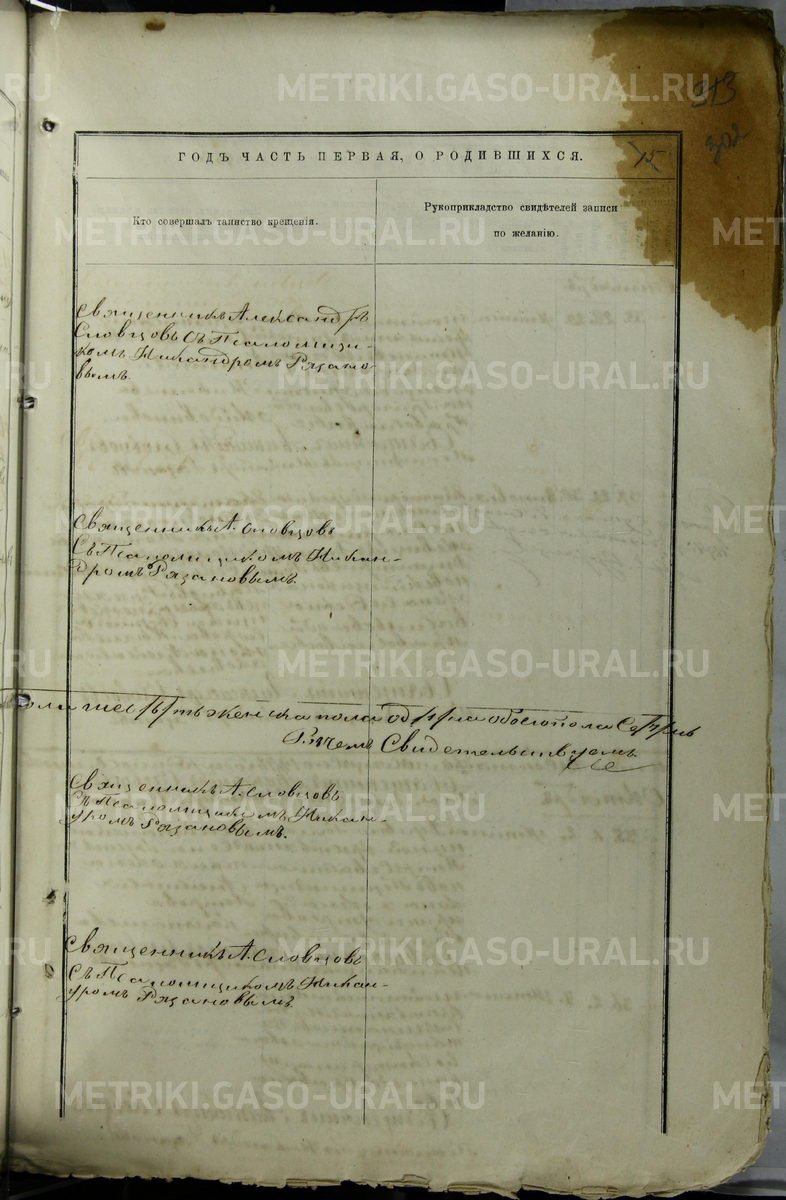 313
302
ГОДЪ ЧАСТЬ ПЕРВАЯ, О РОДИВШИХСЯ.
15
Кто совершалъ таинство крещенія.
Рукоприкладство свидѣтелей записи
по желанію.
Священникъ Александръ
Словцовъ съ Псаломщи-
комъ Никандромъ Рязано-
вымъ.
Священникъ А. Словцовъ
съ Псаломщикомъ Никан-
дромъ Рязановымъ.
пола женска пола обоего пола
В чемъ Свидетельствуемъ
Священникъ А. Словцовъ
съ Псаломщикомъ Никан-
дромъ Рязановымъ.
Священникъ А. Словцовъ
съ Псаломщикомъ Никан-
дромъ Рязановымъ.
METRIKI.GASO-URAL.RU